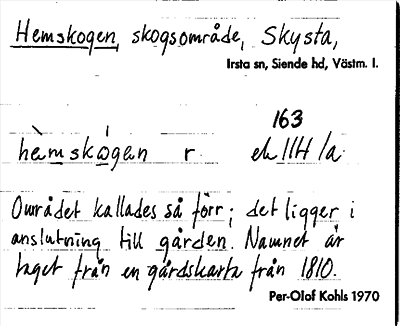 Hemskogen, skogsområde, Skysta,
Irsta sn, Siende hd, Västm. l.
163
hèmskø̀gen r. ek 11H/a
Området kallades så förr; det ligger i
anslutning till gården. Namnet är
taget från en gårdskarta från 1810.
Per-Olof Kohls 1970